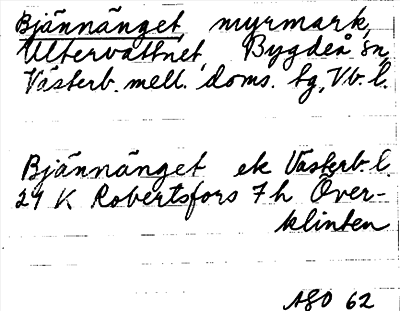 Bjännänget, myrmark,
Ultervattnet, Bygdeå sn,
Västerb. mell. doms. tg, Vb. l.
Bjännänget ek Västerb. l.
24 K Robertsfors 7 h Över-
klinten
ASO 62